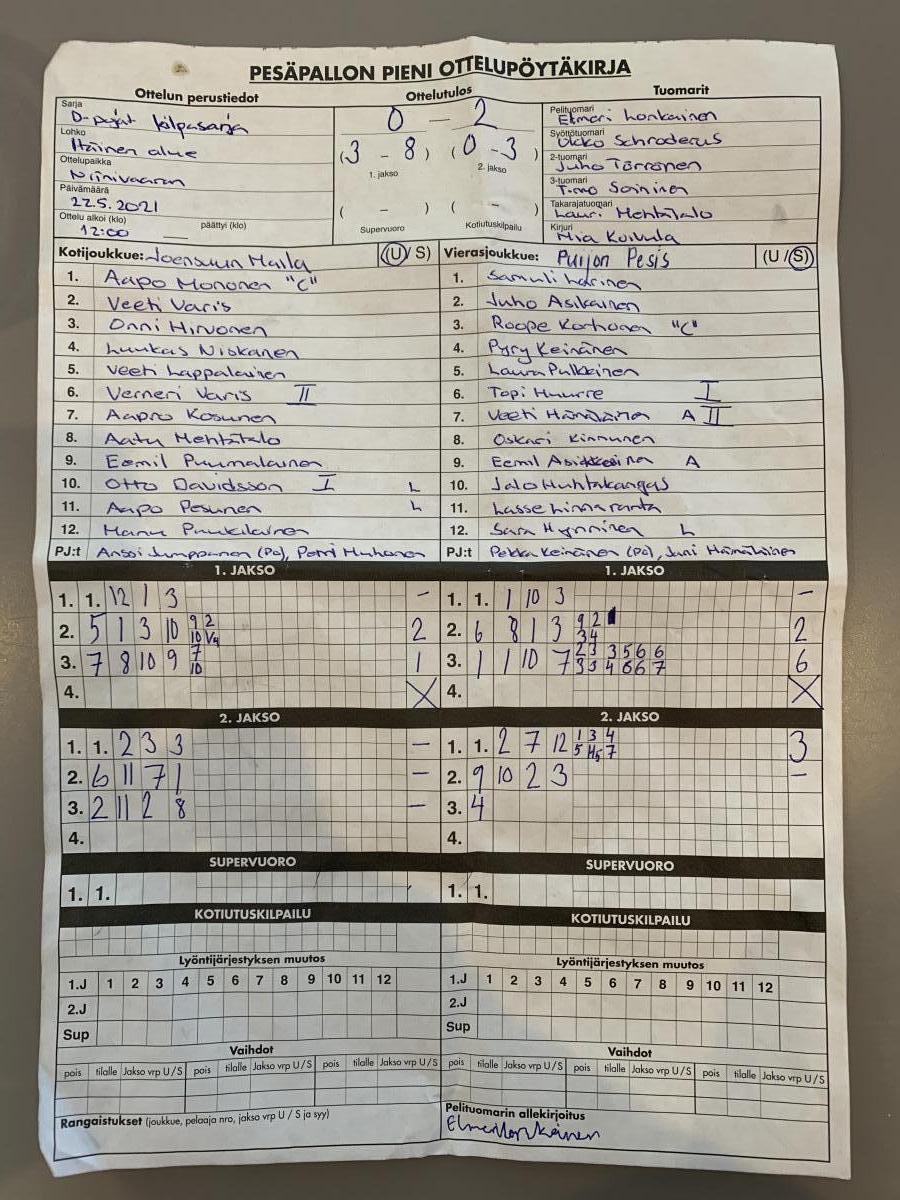 PESÄPALLON PIENI OTTELUPÖYTÄKIRJA
Ottelun perustiedot
Ottelutulos
Tuomarit
Sarja
D-pojat kilpasarja
Lohko
Itäinen alue
Ottelupaikka
Niinivaaran
Päivämäärä
22.5.2021
Ottelu alkoi (klo)
12:00
päättyi (klo)
0 – 2
(3 – 8) (0 – 3)
1. jakso
2. jakso
( – ) ( – )
Supervuoro
Kotiutuskilpailu
Pelituomari
Elmeri Lonkainen
Syöttötuomari
Ukko Schroderus
2-tuomari
Juho Törrönen
3-tuomari
Timo Soininen
Takarajatuomari
Lauri Mehtätalo
Kirjuri
Mia Koivula
Kotijoukkue: Joensuun Maila (U/S)
1. Aapo Mononen "C"
2. Veeti Varis
3. Onni Hirvonen
4. Luukas Niskanen
5. Veeti Lappalainen
6. Verneri Varis II
7. Aapro Kosunen
8. Aatu Mehtätalo
9. Eemil Puumalainen
10. Otto Davidsson I L
11. Aapo Pesunen L
12. Manu Puukilainen
PJ:t Anssi Jumppanen (PJ), Petri Muhonen
Vierasjoukkue: Puijon Pesis (U/S)
1. Samuli Larinen
2. Juho Asikainen
3. Roope Korhonen "C"
4. Pyry Keinänen
5. Laura Pulkkinen
6. Topi Huurre I
7. Veeti Hämäläinen A II
8. Oskari Kinnunen
9. Eemil A
10. Jalo Huhtakangas
11. Lasse Hinnaranta
12. Sara Hynninen L
PJ:t Pekka Keinänen (PJ), Jani Hämäläinen
1. JAKSO
1. 1. 12 1 3 –
2. 5 1 3 10 9 2 2
10 V4
3. 7 8 10 9 7 1
10
4. X
1. JAKSO
1. 1. 1 10 3 –
2. 6 8 1 3 9 2 2
3 4
3. 1 1 10 7 2 3 3 5 6 6 6
3 3 4 6 6 7
4. X
2. JAKSO
1. 1. 2 3 3 –
2. 6 11 7 1 –
3. 2 11 2 8 –
4.
2. JAKSO
1. 1. 2 7 12 1 3 4 3
5 H5 7
2. 9 10 2 3 –
3. 4
4.
SUPERVUORO
1. 1.
SUPERVUORO
1. 1.
KOTIUTUSKILPAILU
KOTIUTUSKILPAILU
Lyöntijärjestyksen muutos
1.J 1 2 3 4 5 6 7 8 9 10 11 12
2.J
Sup
Lyöntijärjestyksen muutos
1.J 1 2 3 4 5 6 7 8 9 10 11 12
2.J
Sup
Vaihdot
pois tilalle Jakso vrp U/S pois tilalle Jakso vrp U/S pois tilalle Jakso vrp U/S
Vaihdot
pois tilalle Jakso vrp U/S pois tilalle Jakso vrp U/S pois tilalle Jakso vrp U/S
Rangaistukset (joukkue, pelaaja nro, jakso vrp U / S ja syy)
Pelituomarin allekirjoitus
Elmeri Lonkainen